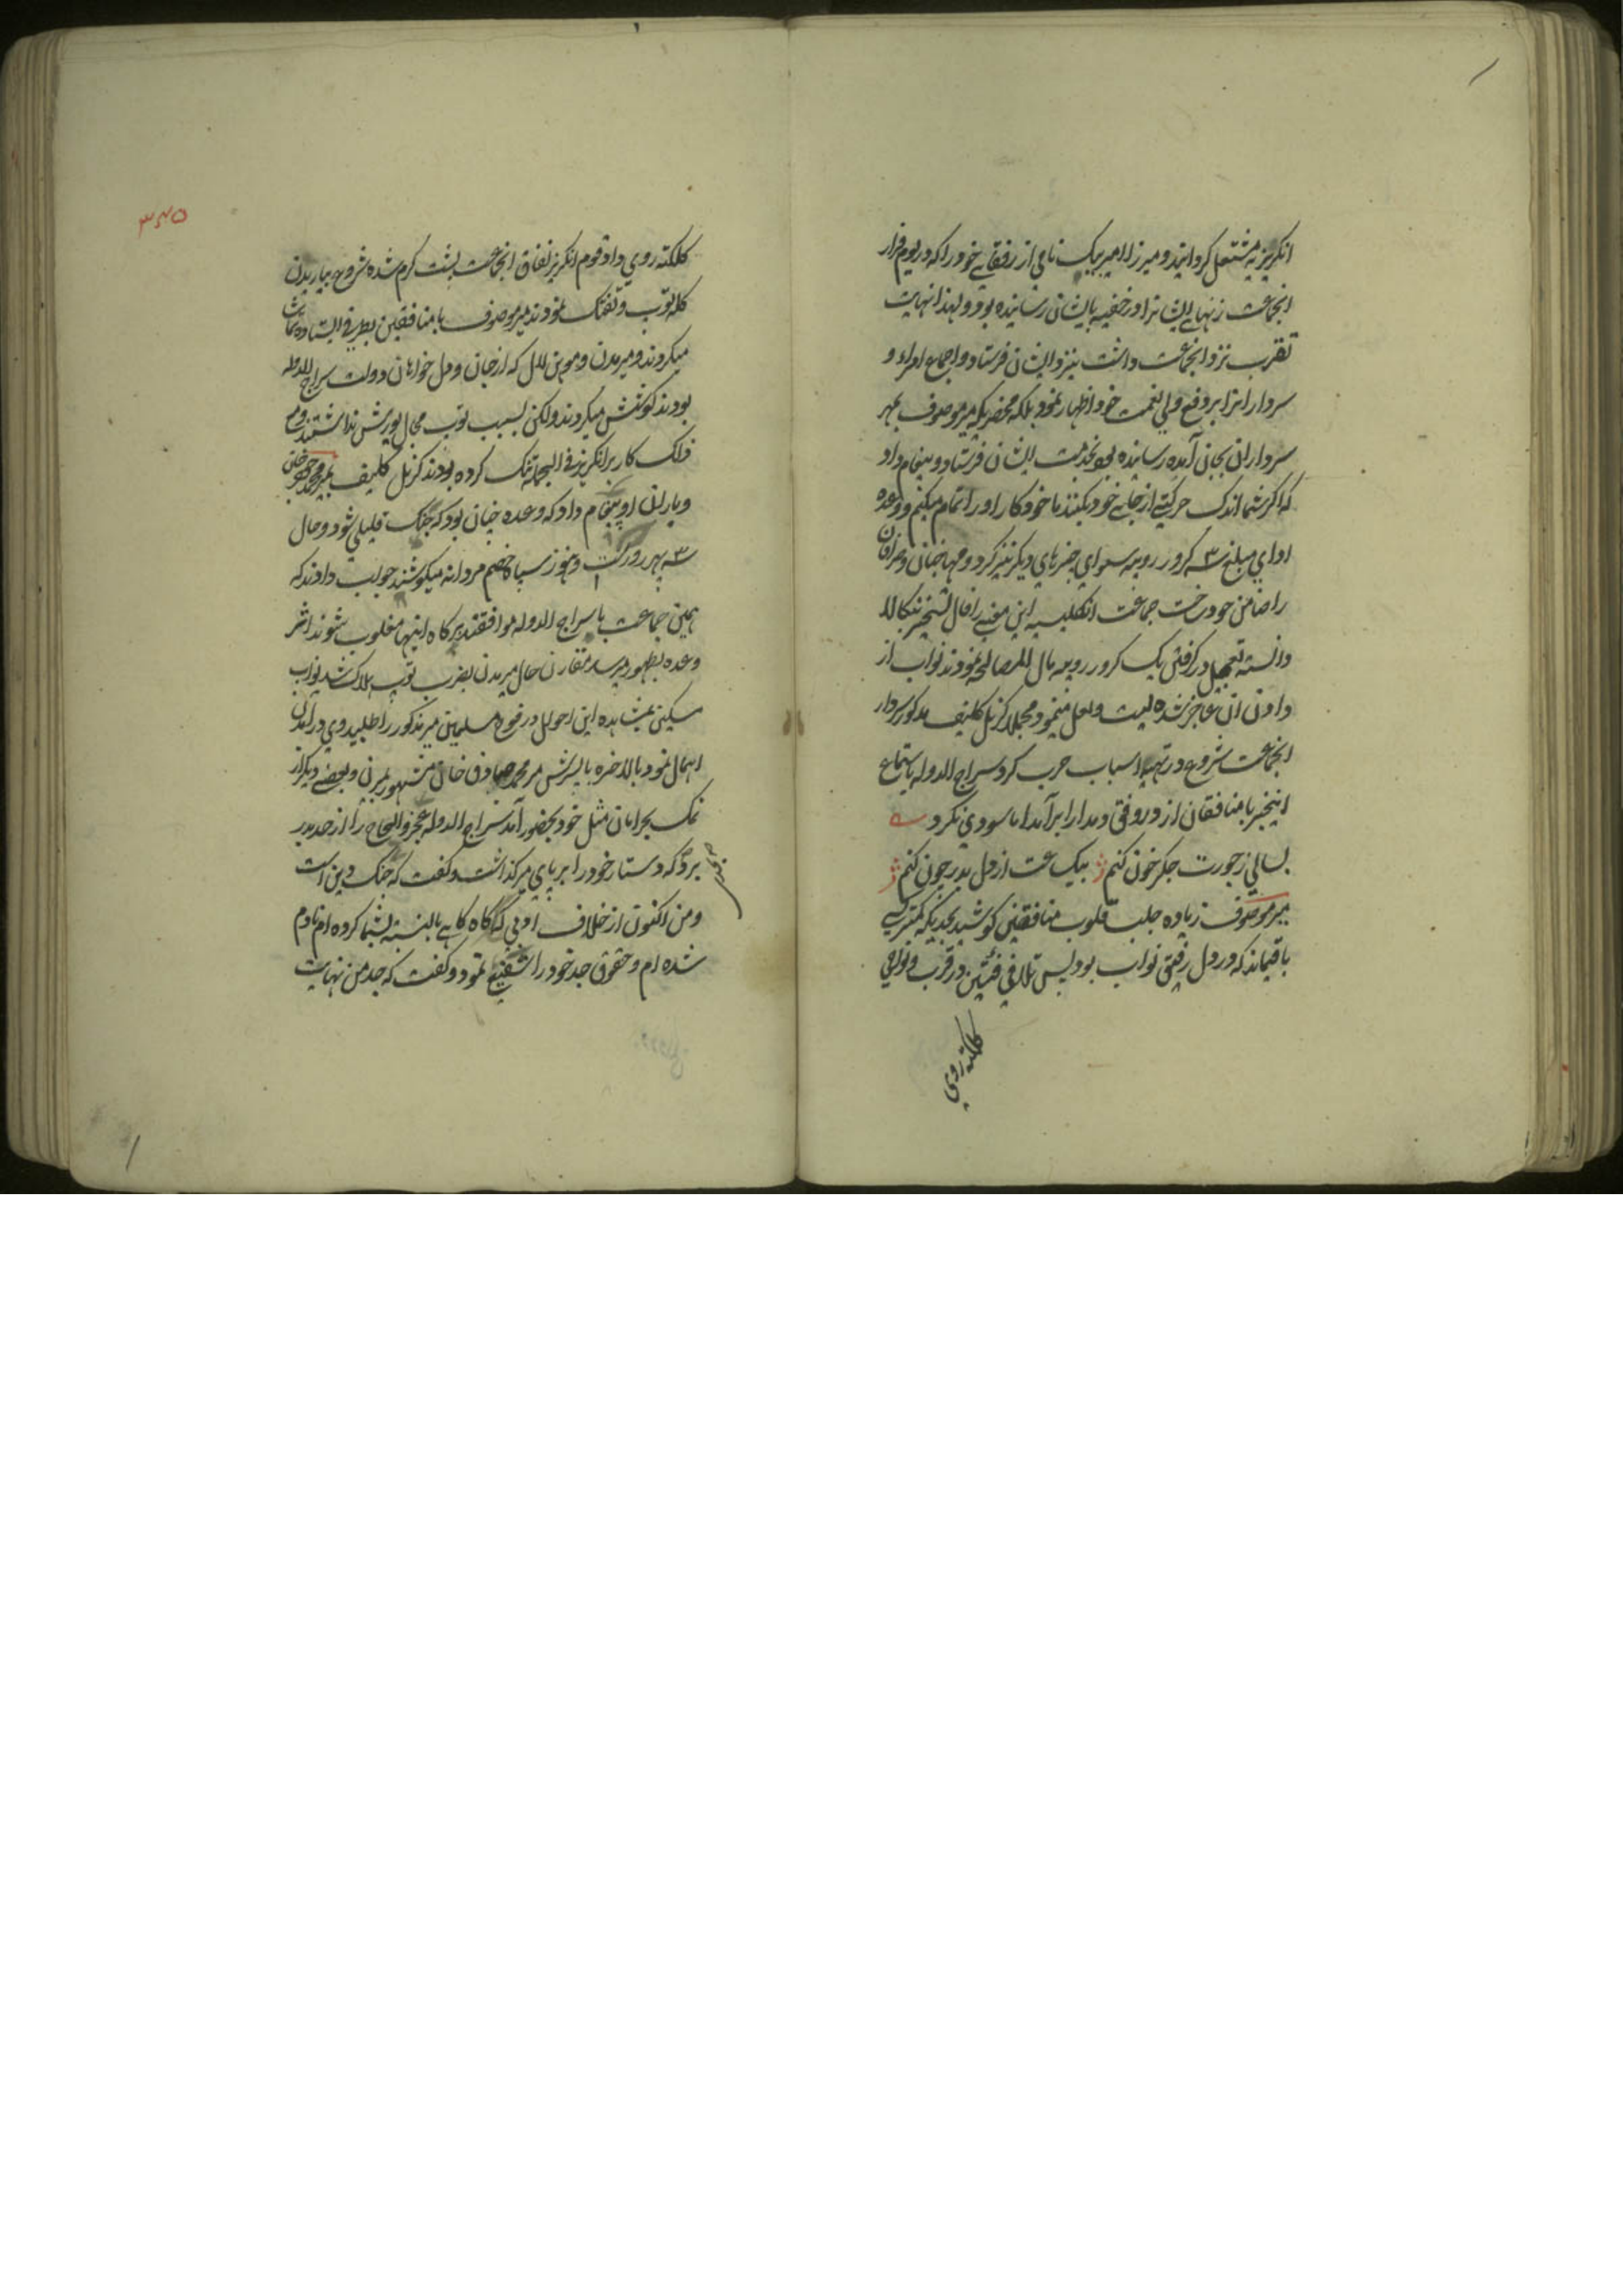 انکریزیه مشتعل کردانید و میرزا امیر بیک نامی از رفقای خود را که در یوم فرار
انجماعت زنهای ایشانرا در خفیه بایشان رسانیده بود و لهذا نهایت
تقرب نزد انجماعت داشت بنزد ایشان فرستاد و اجماع امراء و
سردارانرا بر دفع ولی نعمت خود اظهار نمود بلکه محضریکه میر موصوف بمهر
سرداران بجان آمده رسانیده بود بخدمت ایشان فرستاد و پیغام داد
که اکر شما اندک حرکتی از جای خود بکنند ما خود کار او را تمام میکنم و وعده
ادای مبلغ ۳ کرور روپیه سوای چیزهای دیکر نیز کرد و مهاجنان و صرافان
را ضامن خود ساخت جماعت انکلیسیه این معنی را فال تسخیر بنکاله
دانسته تعجیل در کرفتن یک کرور روپیه مال المصالحه نمودند نواب از
دادن آن عاجز شده لیت و لعل مینمود مجملا کرنل کلیف مذکور سردار
انجماعت شروع در تهیه اسباب حرب کرد سراج الدوله باستماع
اینخبر با منافقان از در وفق و مدارا برآمد اما سودی نکرد
بسالی ز جورت جکر خون کنم بیک ساعت از دل بدر چون کنم
میر موصوف زیاده جلب قلوب منافقین کوشید بحدیکه کمتر کسی
باقیماند که در دل رفیق نواب بود پس تلاقی فئتین در قرب و نواحی
کلکته روی
۳۶۵
کلکته روی داد قوم انکریز بنفاق انجماعت پشت کرم شده شروع بباریدن
کله توپ و تفنک نمودند میر موصوف با منافقین بطرفی ایستاده تماشا
میکردند و میر مدن و موهن لال که از جان و دل خواهان دولت سراج الدوله
بودند کوشش میکردند ولکن بسبب توپ مجال یورش نداشتند و هم
فلک کار بر انکریز فی الجمله تنک کرده بودند کرنل کلیف بمیر محمد جعفر خان
و یاران او پیغام داد که وعده چنان بود که جنک قلیلی شود و حال
۳ پهر روز کذشت و هنوز سپاه خصم مردانه میکوشند جواب دادند که
همین جماعت با سراج الدوله موافقند هرکاه اینها مغلوب شوند اثر
وعده بظهور میرسد مقارن حال میر مدن بضرب توپ هلاک شد نواب
مسکین بمشاهده این احوال در فوج مسلمین میر مذکور را طلبید وی در آمدن
اهمال نمود بالاخره با پسرش میر محمد صادق خان مشهور بمیرن و بعضی دیکر از
نمک بحرامان مثل خود بحضور آمد سراج الدوله عجز و الحاح را از حد بدر
برد که دستار خود را بر پای میر کذاشت و کفت که جنک دین است
و من اکنون از خلاف ادبی که کاه کاهی بالنسبه بشما کرده ام نادم
شده ام و حقوق جد خود را شفیع نمود و کفت که جد من نهایت